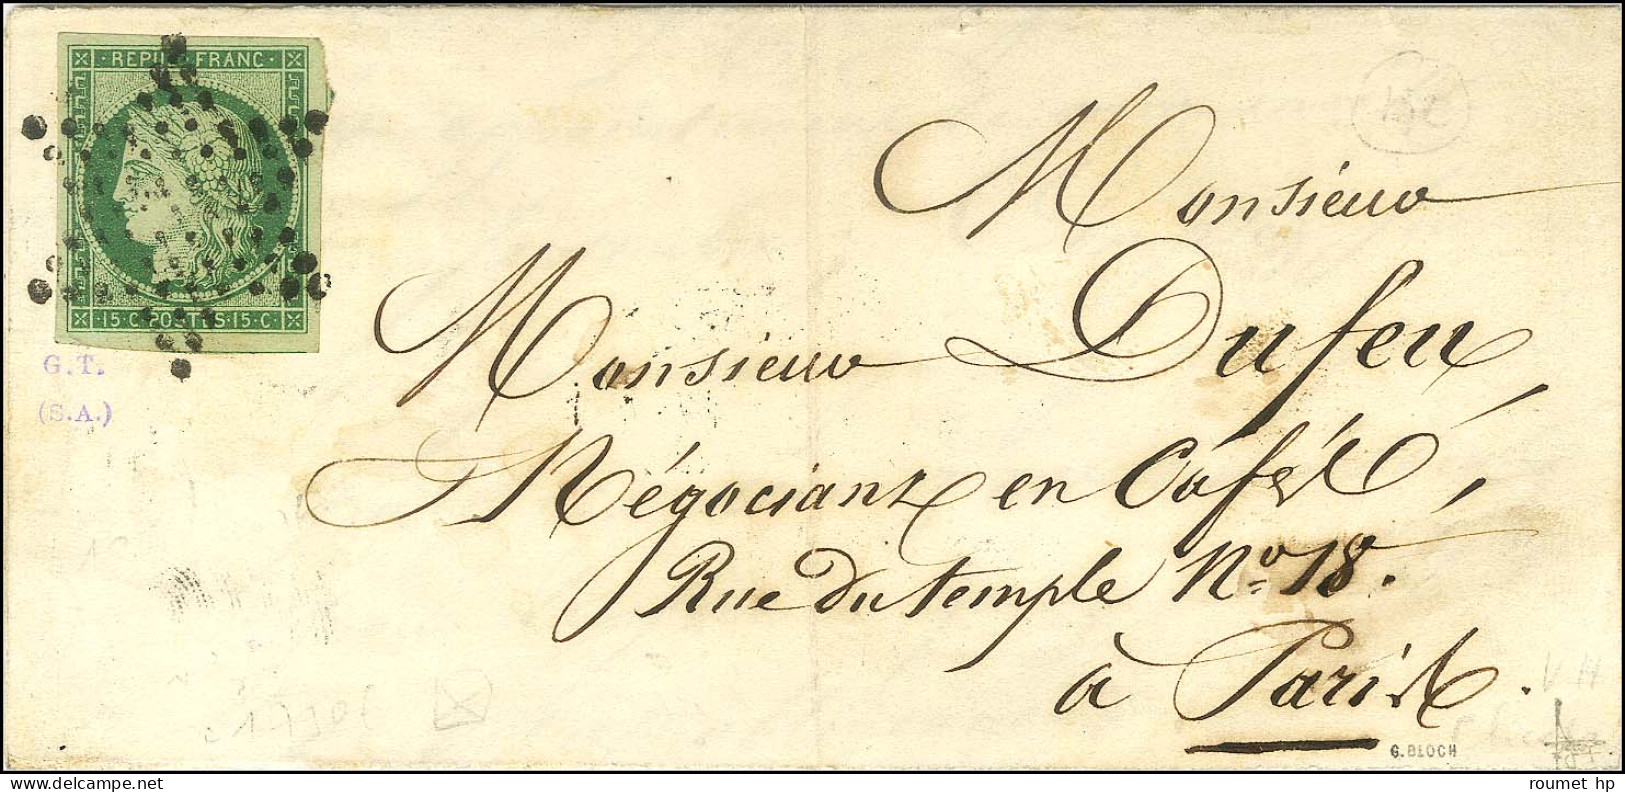 REPUB FRANC
15·C·POSTES·15·C
G.T.
(S.A.)
Monsieur
Monsieur Dufeu,
Négociant en Cafés,
Rue du temple No. 18.
à Paris.
G. BLOCH
roumet hp